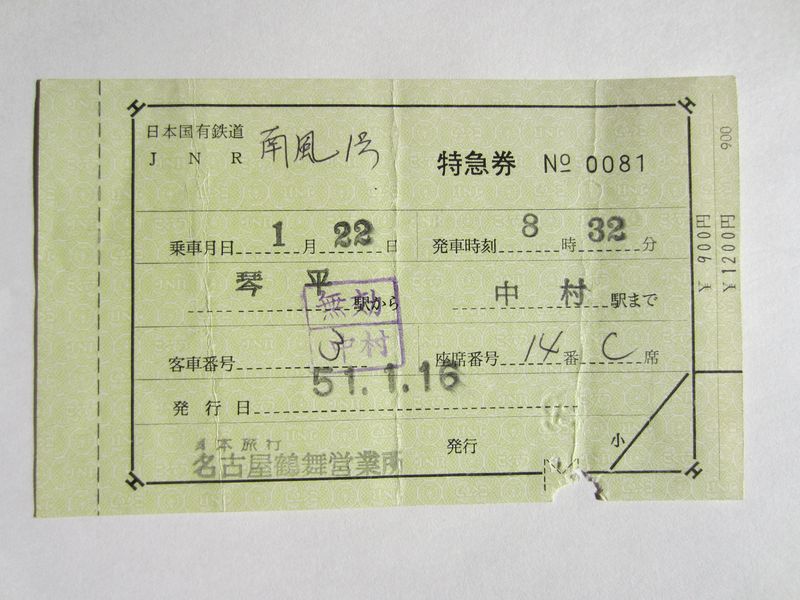 日本国有鉄道
JNR 南風1号
特急券 No 0081
乗車月日 1月22日 発車時刻 8時32分
琴平駅から 中村駅まで
無効
中村
客車番号 3 座席番号 14番C席
51.1.16
発行日
日本旅行
名古屋鶴舞営業所 発行
小
900
¥900円
¥1200円